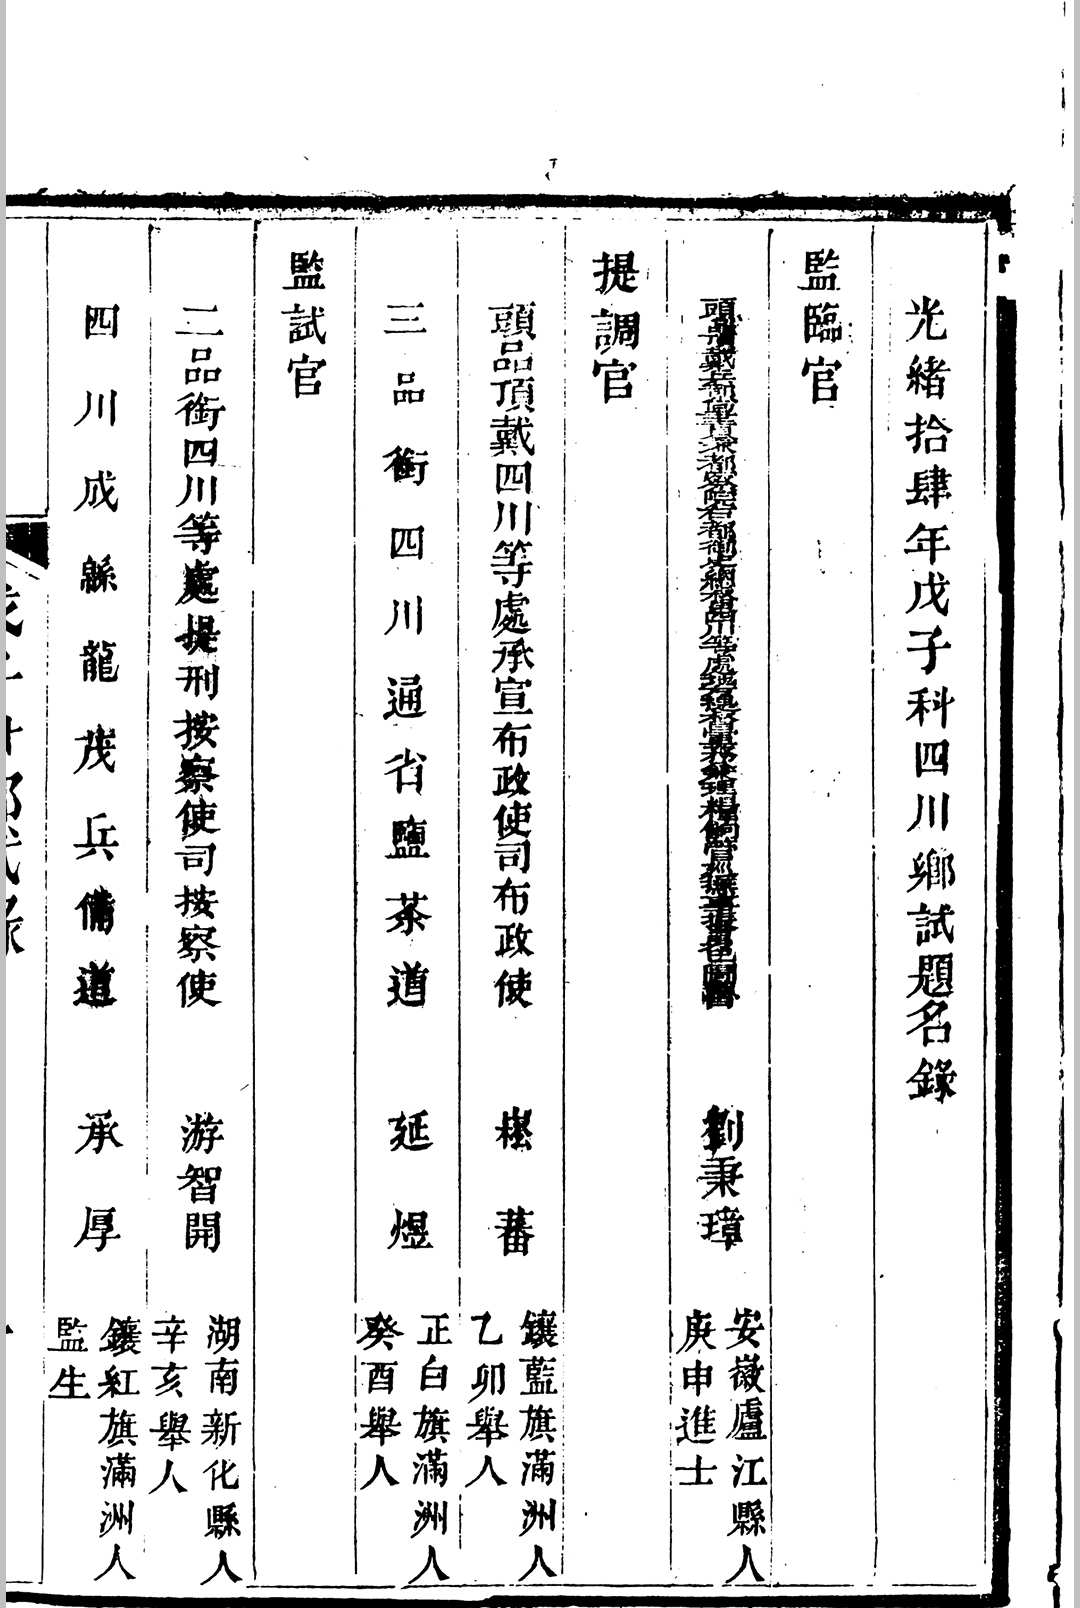 光緒拾肆年戊子科四川鄉試題名錄
監臨官
頭品頂戴兵部尚書兼都察院右都御史總督四川等處 劉秉璋 安徽廬江縣人
庚申進士
提調官
頭品頂戴四川等處承宣布政使司布政使 崧蕃 鑲藍旗滿洲人
乙卯舉人
三品銜四川通省鹽茶道 延煜 正白旗滿洲人
癸酉舉人
監試官
二品銜四川等處提刑按察使司按察使 游智開 湖南新化縣人
辛亥舉人
四川成緜龍茂兵備道 承厚 鑲紅旗滿洲人
監生